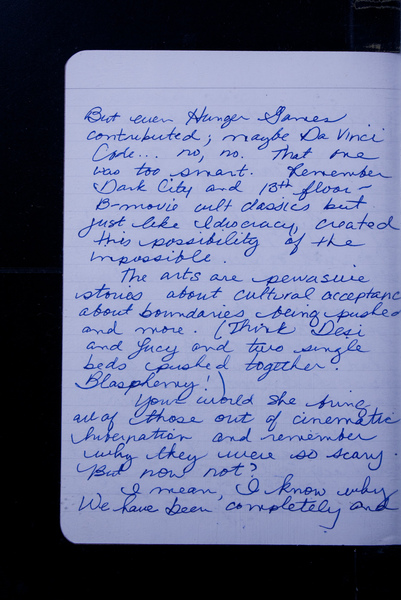 But even Hunger Games
contributed; maybe Da Vinci
Code... no, no. That one
was too smart. Remember
Dark City and 13th floor -
B-movie cult classics but
just like Idiocracy, created
this possibility of the
impossible.
The arts are pervasive
stories about cultural acceptanc
about boundaries being pushed
and more. (Think Desi
and Lucy and two single
beds pushed together.
Blasphemy!)
Your world she bring
all of those out of cinematic
hibernation and remember
why they were so scary.
But now not?
I mean, I know why
We have been completely and